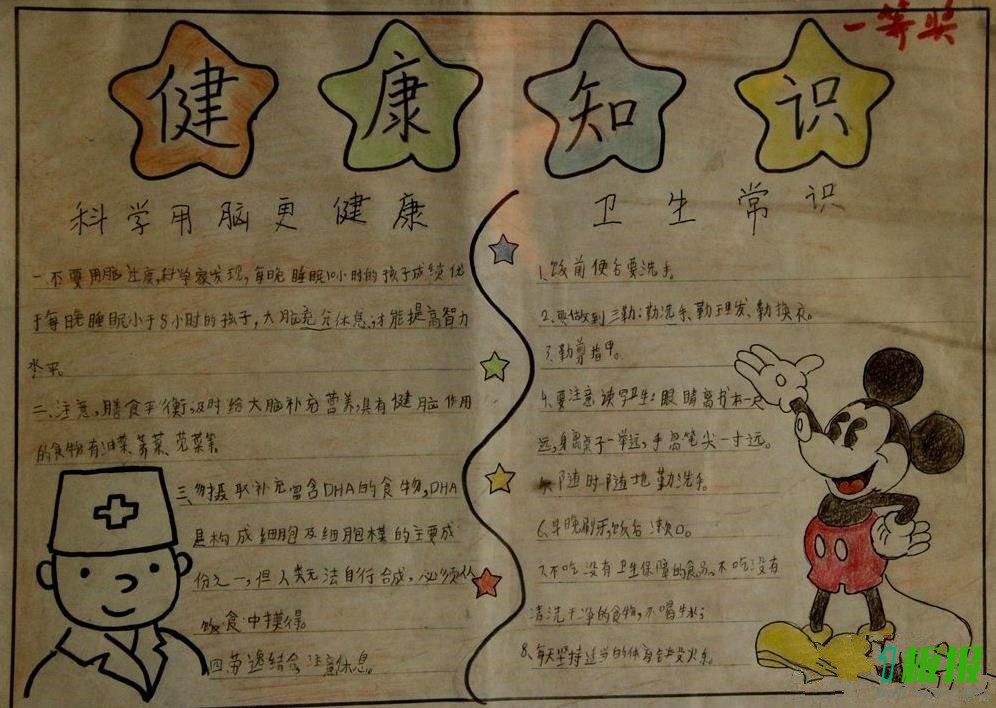 一等奖
健康知识
科学用脑更健康
一.不要用脑过度,科学家发现,每晚睡眠10小时的孩子成绩优
于每晚睡眠小于8小时的孩子,大脑充分休息,才能提高智力
水平。
二、注意,膳食平衡,及时给大脑补充营养,具有健脑作用
的食物有油菜、荠菜、菠菜等。
三、多摄取补充富含DHA的食物,DHA
是构成细胞及细胞膜的主要成
份之一,但人类无法自行合成,必须从
饮食中摸得。
四、劳逸结合,注意休息。
卫生常识
1.饭前便后要洗手。
2.要做到三勤:勤洗手、勤理发、勤换衣。
3.勤剪指甲。
4.要注意读写卫生:眼睛离书本一尺
远,身离桌子一拳远,手离笔尖一寸远。
随时随地勤洗手。
6.早晚刷牙,饭后漱口。
7.不吃没有卫生保障的食品。不吃没有
清洗干净的食物,不喝生水;
8.每天坚持适当的体育
板报